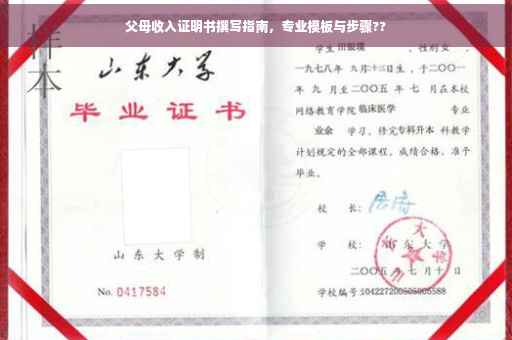 父母收入证明书撰写指南，专业模板与步骤??
样本
山东大学
毕业证书
山东大学制
No. 0417584
学生 性别女，
一九七八年九月十三日生，于二〇〇一
年九月至二〇〇五年七月在本校
网络教育学院临床医学 专业
业余 学习，修完专科升本科教学
计划规定的全部课程，成绩合格，准予
毕业。
校 长：
学 校：山东大学
二〇〇五年七月十日
学校编号:104227200505005588